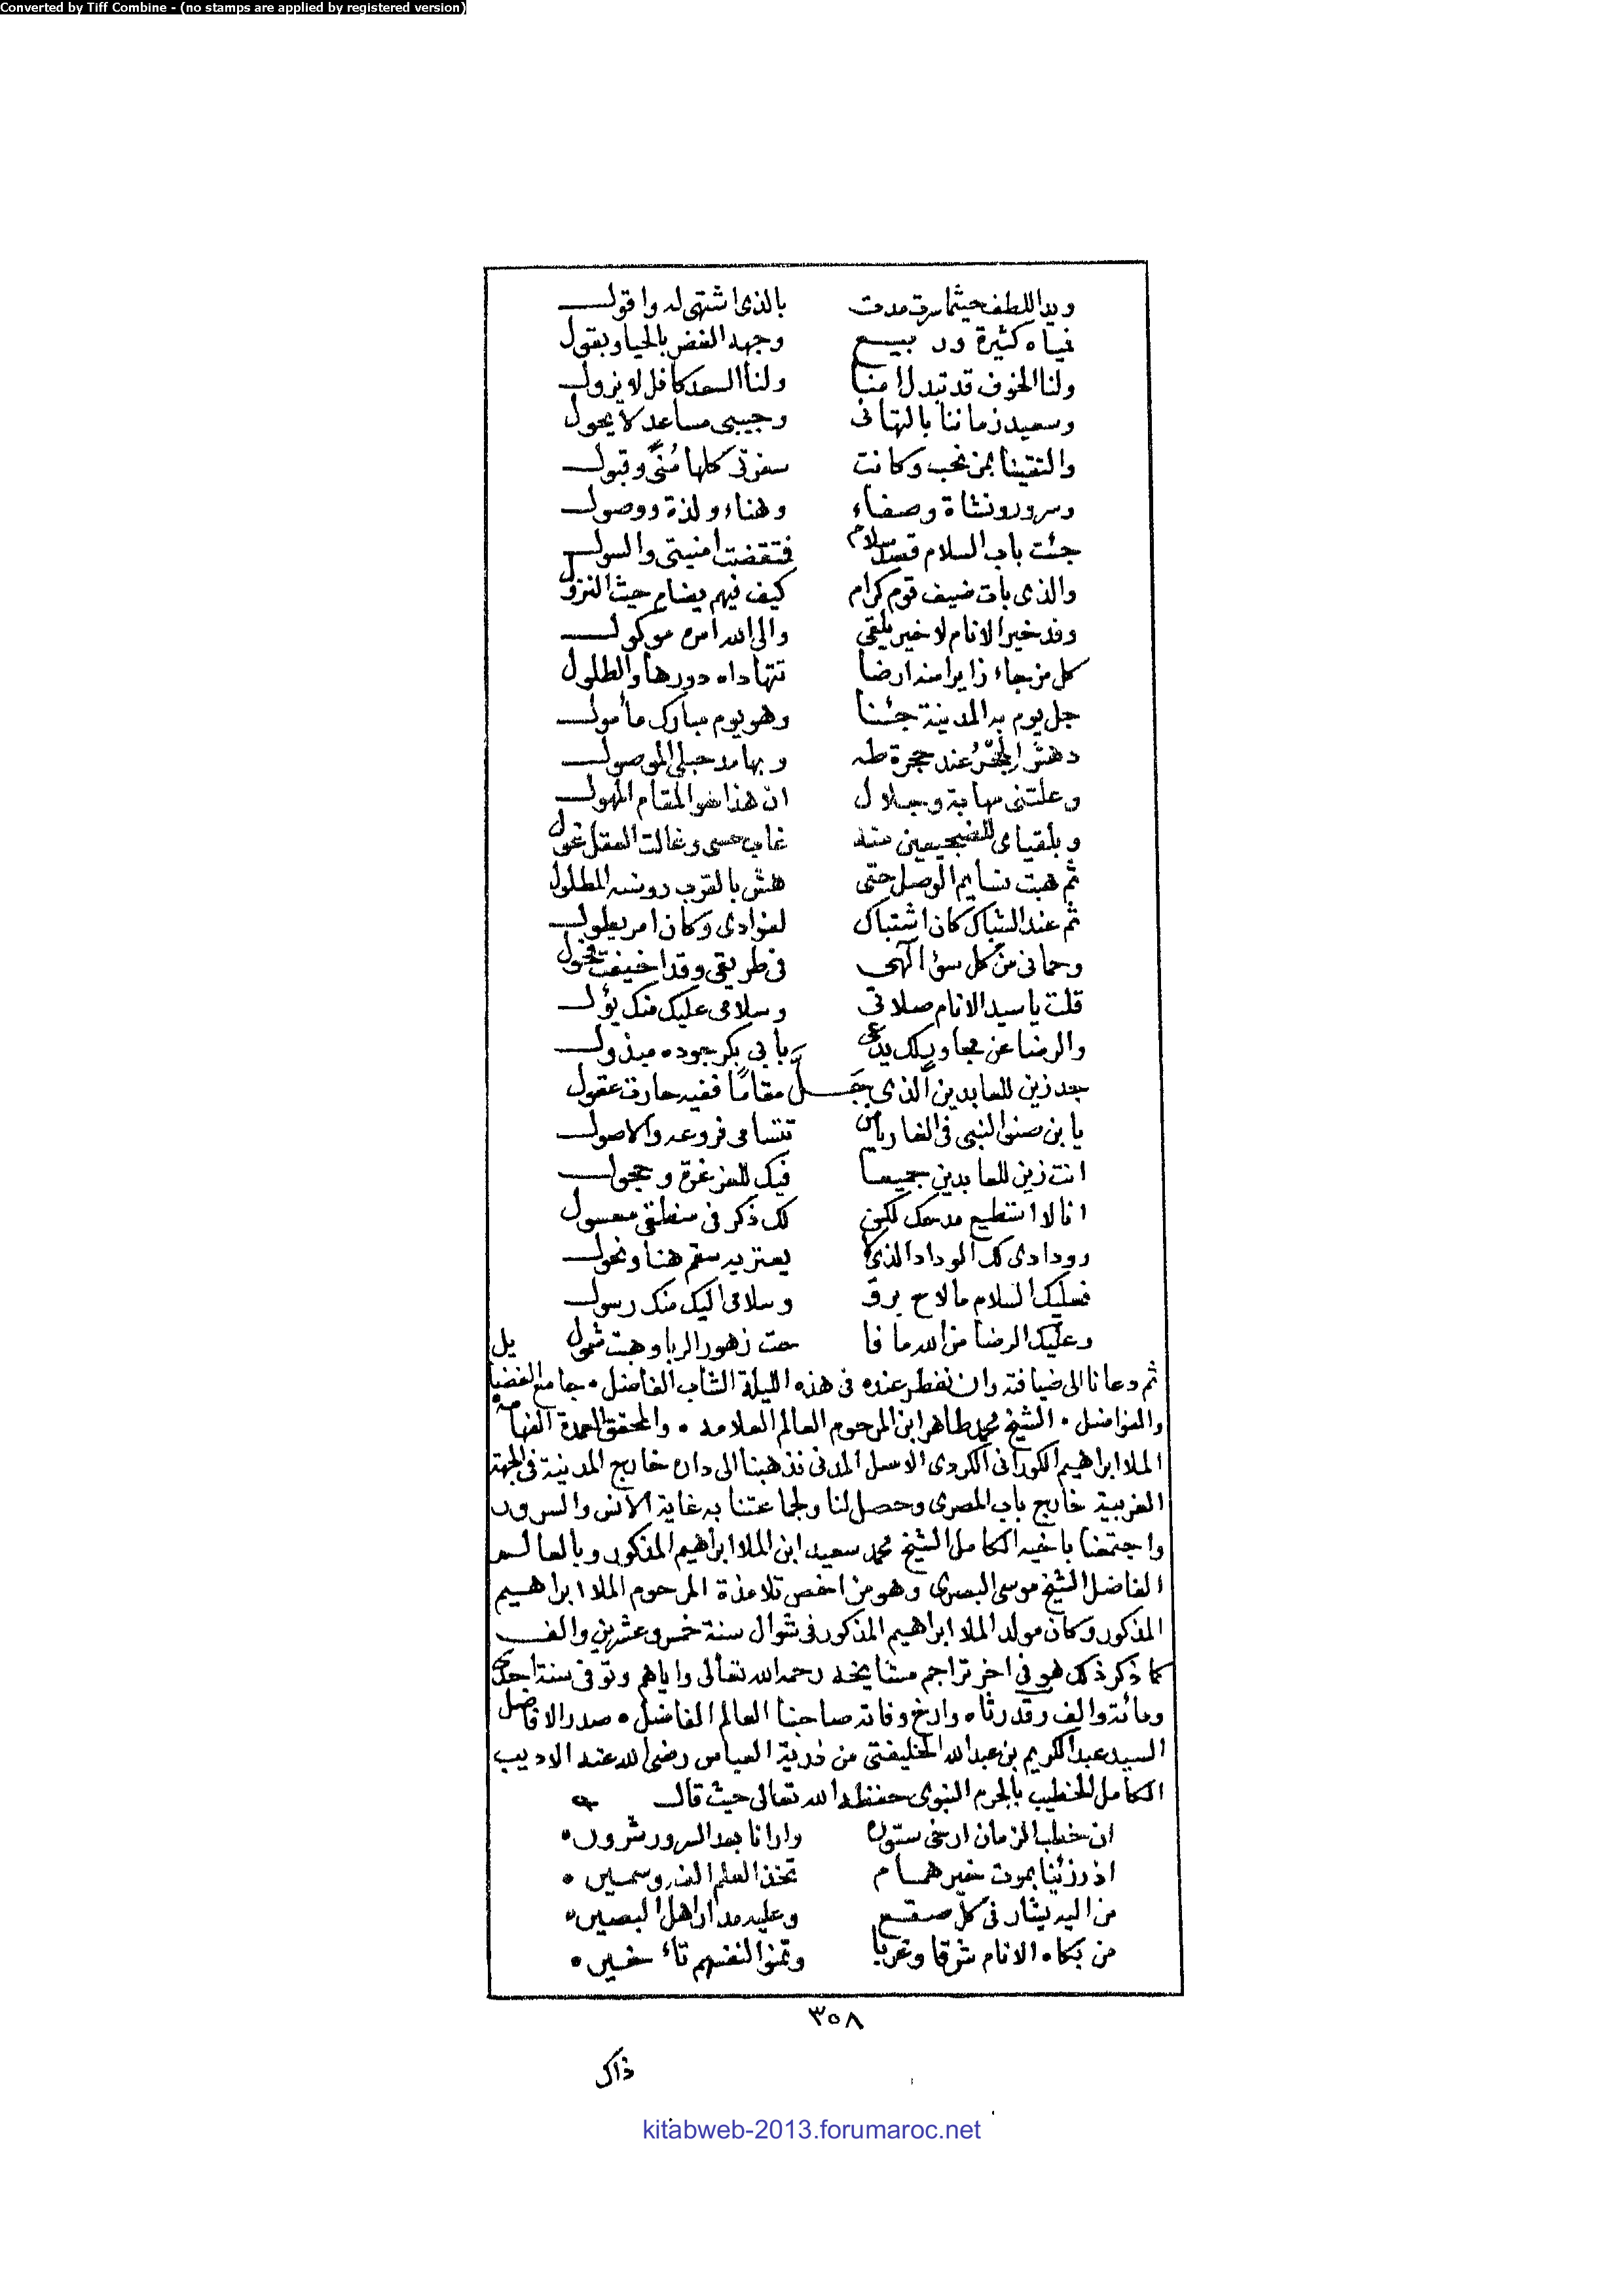 Converted by Tiff Combine - (no stamps are applied by registered version)
ويد اللطف حيثما سرت مدت بالذى اشتهى له واقول
فمياه كثيرة وربيع وجهه الغض بالحيا وبقول
ولنا الخوف قد تبدل امنا ولنا السعد كافل لا يزول
وسعيد زماننا بالتهانى وحبيبى مساعد لا يحول
والتقينا بمن نحب وكانت سفرتى كلها مُنىً وقبول
وسرور ونشاة وصفاء وهناء ولذة ووصول
جئت باب السلام قبل سلام فتقضت امنيتى والسول
والذى بات ضيف قوم كرام كيف فيهم يضام حيث النزول
وفد خير الانام لا خير يلقى والى الله امره موكول
كل من جاء زايرا منه ارضا تتهاداه دورها والطلول
جل يوم به المدينة جئنا وهو يوم مبارك مأمول
دهش عند حجرة طه وبها مد حبلى الموصول
وعلتنى مهابة وجلال ان هذا هو المقام المهول
وبلقياى للضجيعين منه غاب حسى وغالت العقل غول
ثم هبت نسايم الوصل حتى هش بالقرب روضه المطلول
ثم عند الشباك كان اشتباك لفؤادى وكان امر يطول
وحمانى من كل سؤ الهى فى طريقى وقد اخيفت فحول
قلت يا سيد الانام صلاتى وسلامى عليك منك يؤل
والرضا عن مجاور لك يدعى بابى بكر جوده مبذول
جد زين للعابدين الذى جل مقاما ففيه حارت عقول
يا بن صنو النبى فى الغار يا من تتسامى فروعه والاصول
انت زين للعابدين جميعا فيك للعز غرة وحجول
انا لا استطيع مدحك لكن لك ذكر فى منطقى معسول
وودادى لك الوداد الذى لا يعتريه سقم هنا ونحول
فعليك السلام ما لاح برق وسلامى اليك منك رسول
وعليك الرضا من الله ما فا حت زهور الربا وهبت شمول
ثم دعانا الى ضيافته وان نفطر عنده فى هذه الليلة الشاب الفاضل • جامع الفضايل
والفواضل • الشيخ محمد طاهر ابن المرحوم العالم العلامه • والمحقق العمدة الفهامة
الملا ابراهيم الكورانى الكردى الاصل المدنى فذهبنا الى داره خارج المدينة فى الجهة
الغربية خارج باب المصرى وحصل لنا ولجماعتنا به غاية الانس والسرور
واجتمعنا باخيه الكامل الشيخ محمد سعيد ابن الملا ابراهيم المذكور وبالعالم
الفاضل الشيخ موسى البصرى وهو من اخص تلامذة المرحوم الملا ابراهيم
المذكور وكان مولد الملا ابراهيم المذكور فى شوال سنة خمس وعشرين والف
كما ذكر ذلك هو فى اخر تراجم مشايخه رحمه الله تعالى واياهم وتوفى سنة احدى
ومائة والف وقد رثاه وارخ وفاته صاحبنا العالم الفاضل • صدر الافاضل
السيد عبد الكريم بن عبد الله الخليفتى من ذرية العباس رضى الله عنه الاديب
الكامل الخطيب بالحرم النبوى حفظه الله تعالى حيث قال
ان خطب الزمان ارخى ستوره وارانا بعد السرور شروره •
اذ رزئنا بموت خير همام تخذ العلم الفه وسميره •
من اليه يشار فى كل صقع وعليه مدار اهل البصيره •
من بكاه الانام شرقا وغربا
٣٥٨
ذاك
kitabweb-2013.forumaroc.net